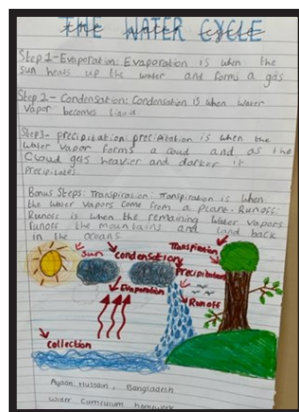 THE WATER CYCLE
Step 1- Evaporation: Evaporation is when the
sun heats up the water and forms a gas
Step 2- Condensation: Condensation is when water
vapor becomes liquid
Step3- precipitation: precipitation is when the
water vapor forms a cloud and as the
cloud gets heavier and darker it
precipitates.
Bonus Steps: Transpiration: Transpiration is when
the water vapors come from a plant. Runoff:
Runoff is when the remaining water vapors
runoff the mountains and land back
in the oceans
Sun
Condensation
Transpiration
Precipitation
Evaporation
Runoff
Collection
Hussain, Bangladesh
Wider Curriculum Homework